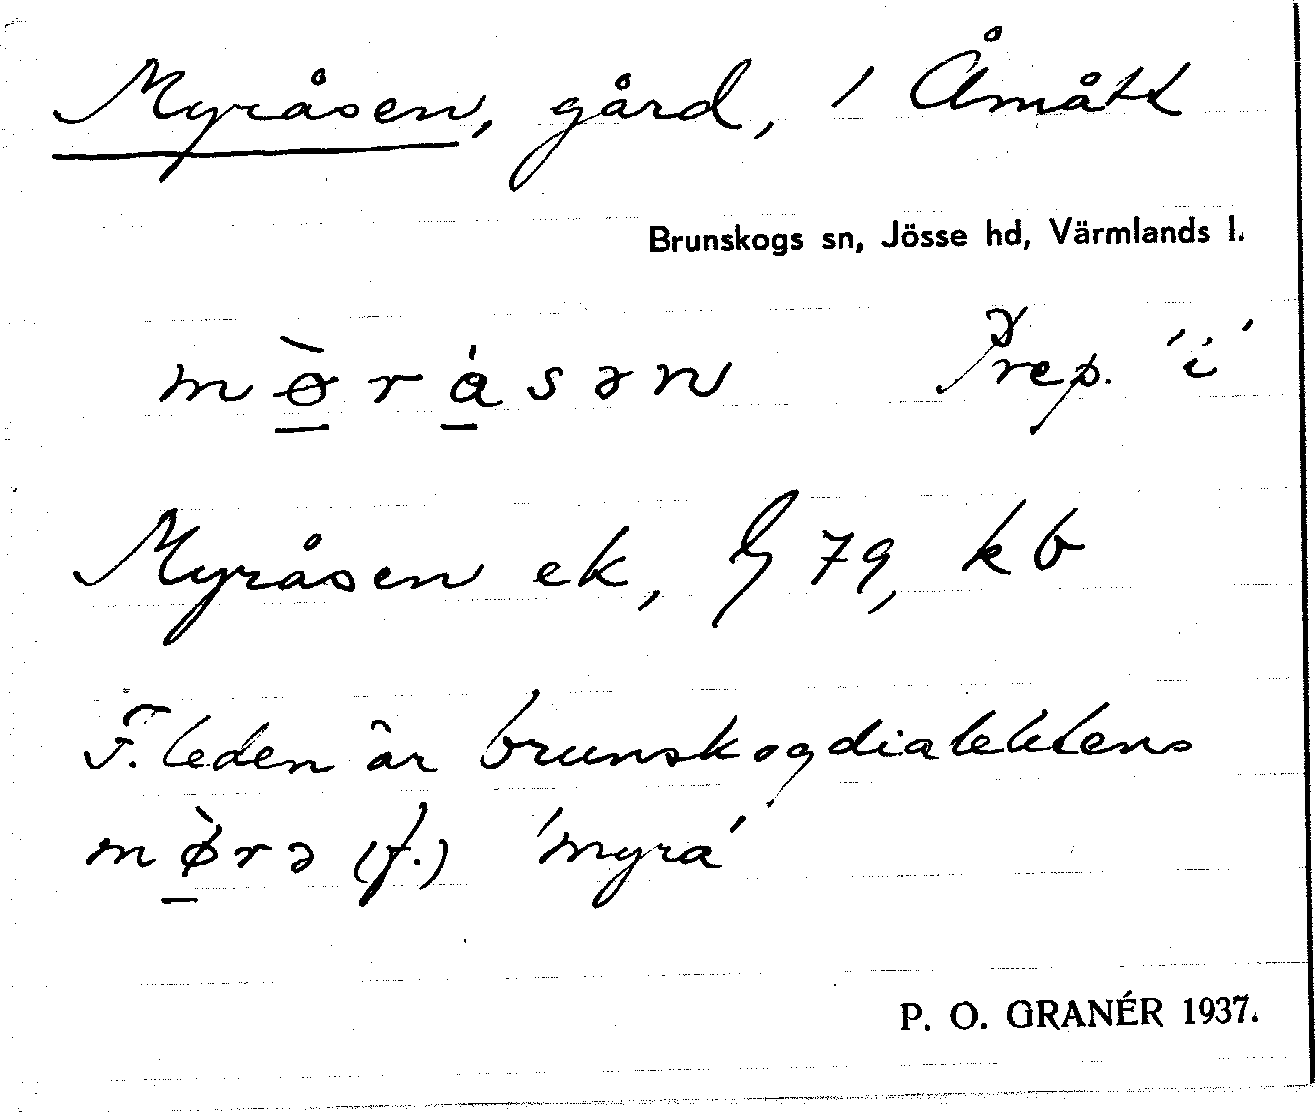 Myråsen, gård, 1 Åmått
Brunskogs sn, Jösse hd, Värmlands l.
mø̀rásən Prep. 'i'
Myråsen ek, 79, kb
F. leden är brunskogdialektens
mø̀rə (f.) 'myra'
P. O. GRANÉR 1937.